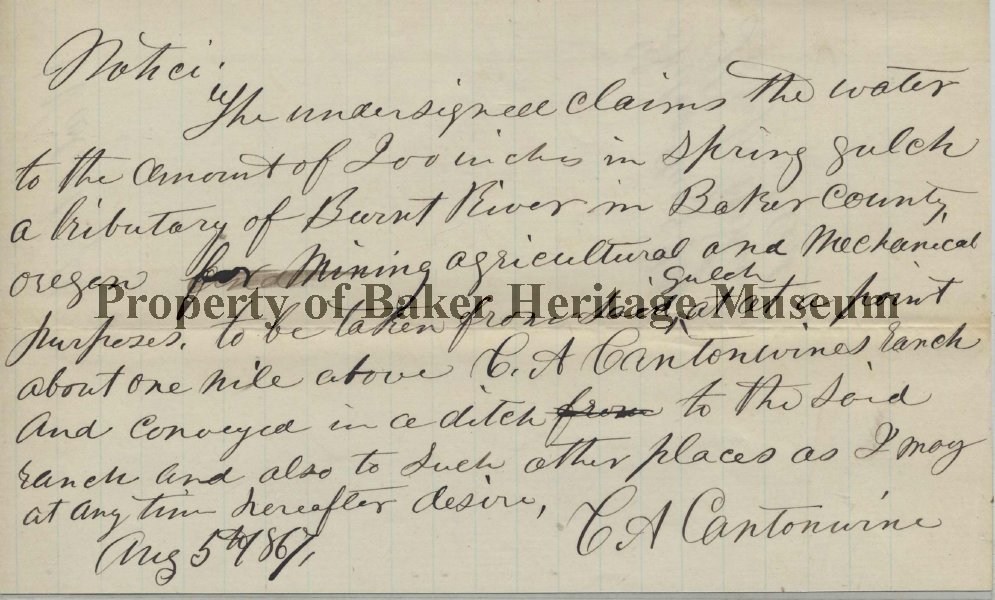 Notice.
The undersigned claims the water
to the amount of 200 inches in Spring gulch
a tributary of Burnt River in Baker County,
Oregon for Mining agricultural and Mechanical
gulch
Property of Baker Heritage Museum
purposes. to be taken from said at at a point
about one mile above C. A Cantonwines Ranch
And conveyed in a ditch from to the Said
Ranch and also to Such other places as I may
at any time hereafter desire,
C A Cantonwine
Aug 5th 1867,